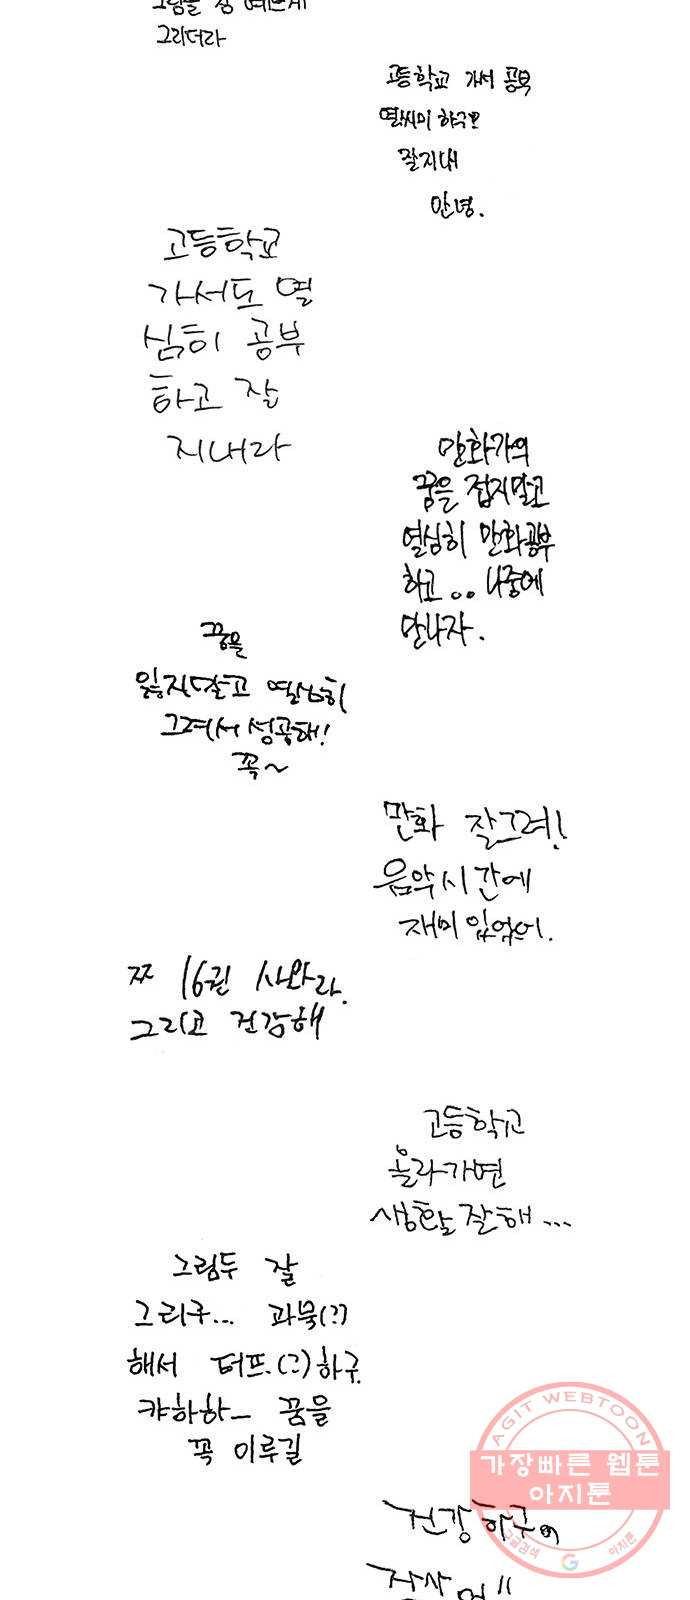 그림을 참 예쁘게
그리더라
고등학교 가서 공부
열씨미 하구!!
잘지내
안녕.
고등학교
가서도 열
심히 공부
하고 잘
지내라
만화가의
꿈을 접지말고
열심히 만화공부
하고.. 나중에
만나자.
꿈을
잃지말고 열심히
그려서 성공해!
꼭~
만화 잘그려!
음악시간에
재미있었어.
짜 16권 사와라.
그리고 건강해
고등학교
올라가면
생활 잘해...
그림두 잘
그리구... 과묵(??)
해서 터프.(?)하구.
캬하하- 꿈을
꼭 이루길
건강하구여
잘살어!!
AGIT WEBTOON
가장빠른 웹툰
아지툰
구글검색
아지툰